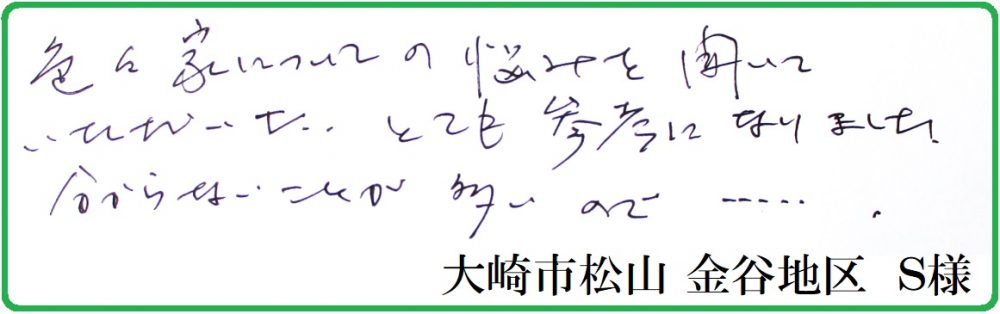 色々家についての悩みを聞いて
いただいた。とても参考になりました。
分からないことが多いので ……。
大崎市松山 金谷地区 S様